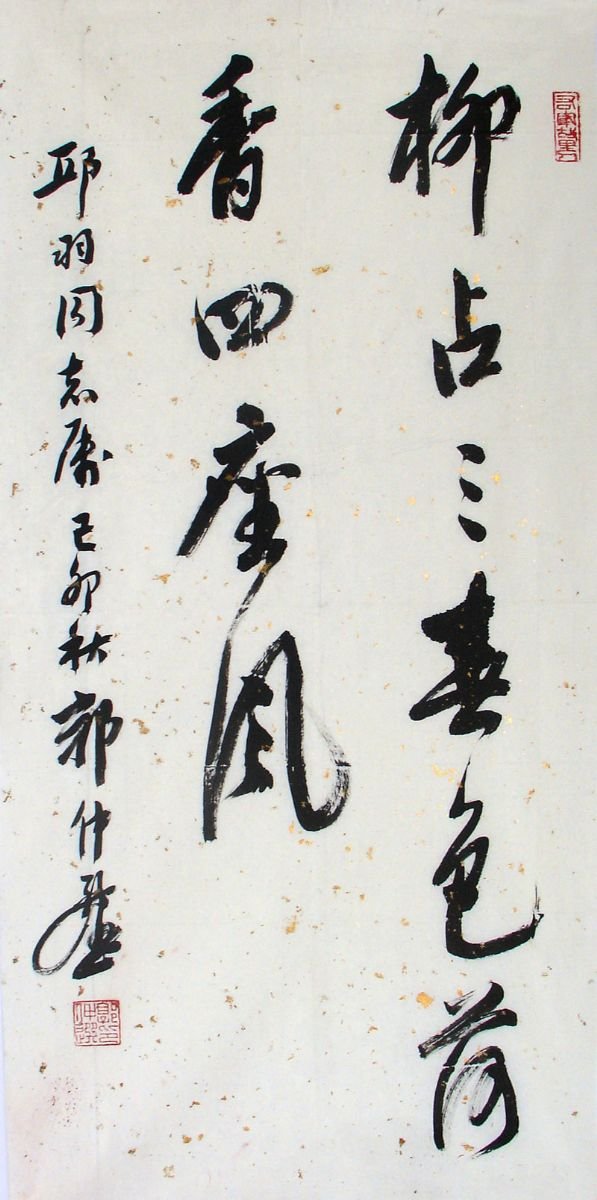 柳占三春色荷
香四座风
邱羽同志属己卯秋郭仲选